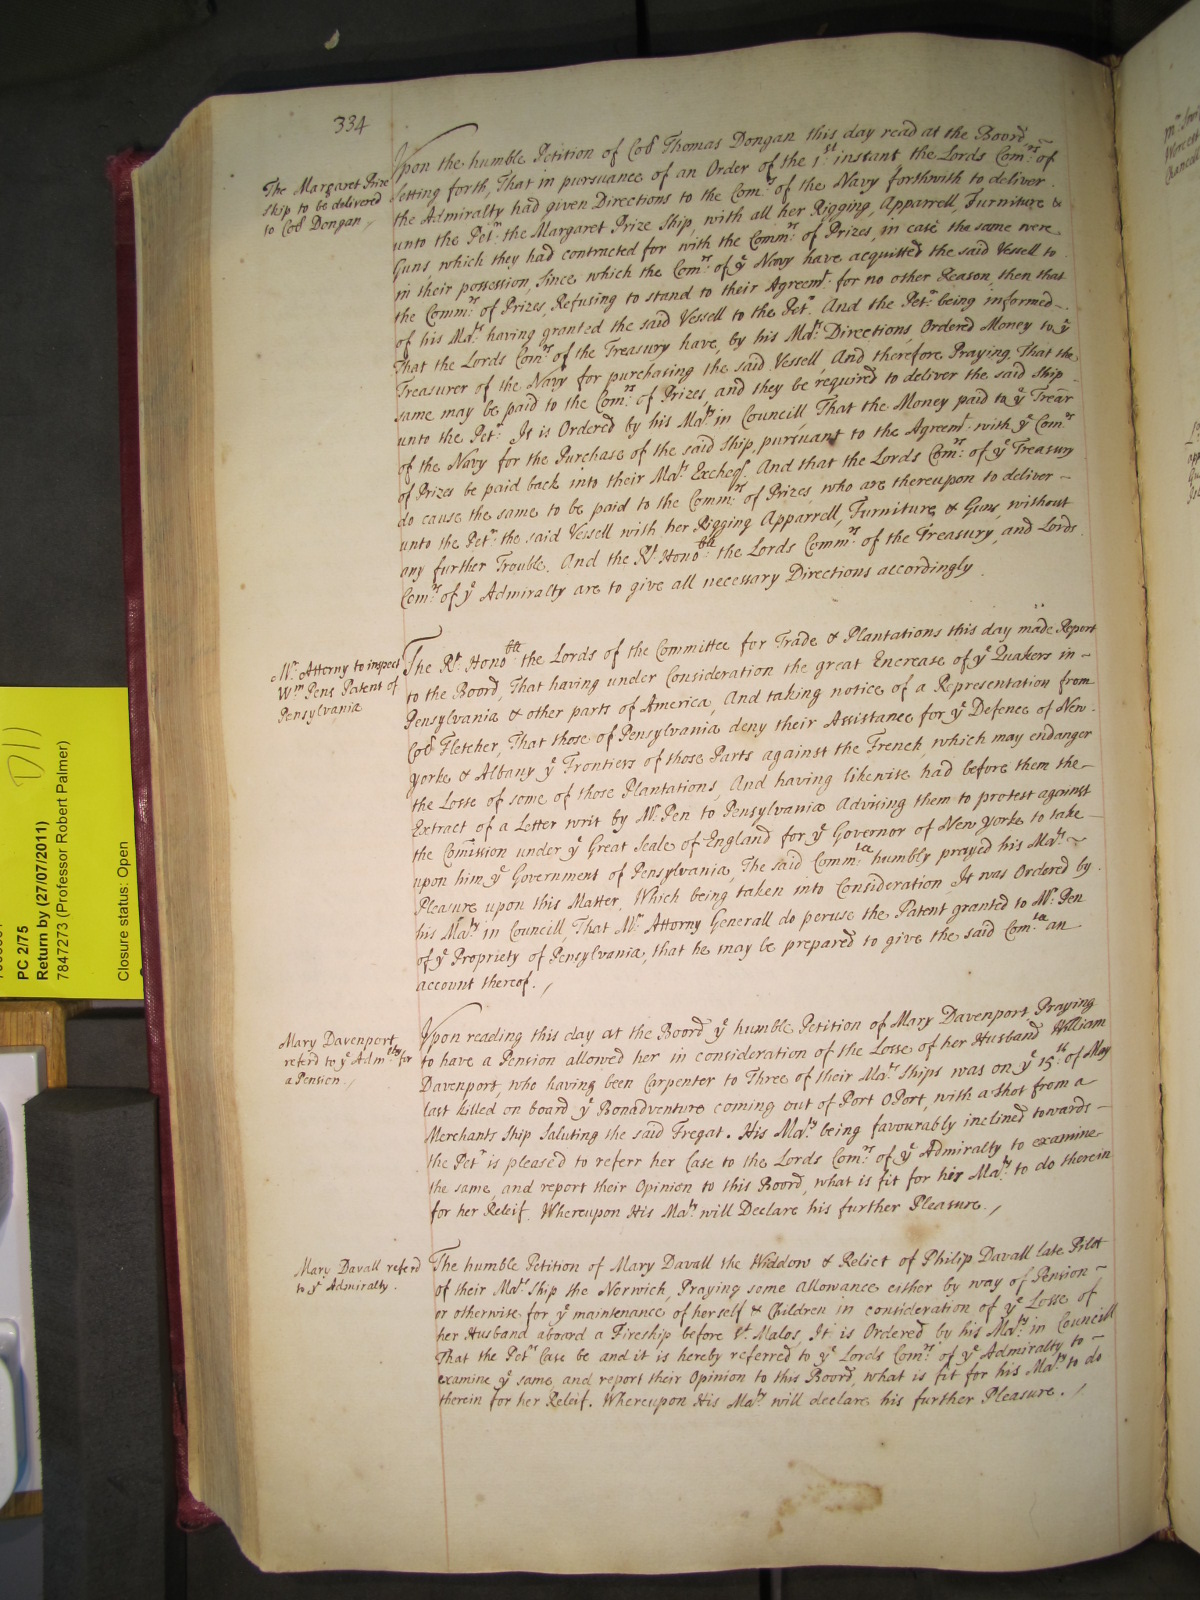 334
The Margaret Prize
Ship to be delivered
to Coll Dongan
Upon the humble Petition of Coll Thomas Dongan this day read at the Board
setting forth, That in pursuance of an Order of the 1st instant the Lords Comrs of
the Admiralty had given Directions to the Comrs of the Navy forthwith to deliver
unto the Petr the Margaret Prize Ship, with all her Rigging, Apparrell, Furniture &
Guns which they had contracted for with the Commrs of Prizes, in case the same were
in their possession, Since which the Comrs of ye Navy have acquitted the said Vessell to
the Commrs of Prizes, Refusing to stand to their Agreemt for no other Reason, then that
of his Maty having granted the said Vessell to the Petr And the Petr being informed
That the Lords Comrs of the Treasury have, by his Mats Directions, Ordered Money to ye
Treasurer of the Navy for purchasing the said Vessell, And therefore Praying That the
same may be paid to the Comrs of Prizes, and they be required to deliver the said Ship
unto the Petr It is Ordered by his Maty in Councill That the Money paid to ye Trear
of the Navy for the Purchase of the said Ship, pursuant to the Agreemt with ye Comrs
of Prizes be paid back into their Mats Excheqr. And that the Lords Comrs of ye Treasury
do cause the same to be paid to the Commrs of Prizes, who are thereupon to deliver
unto the Petr the said Vessell with her Rigging Apparrell, Furniture & Guns, without
any further Trouble. And the Rt Honoble the Lords Commrs of the Treasury, and Lords
Comrs of ye Admiralty are to give all necessary Directions accordingly.
Mr Attorny to inspect
Wm Pens Patent of
Pensylvania
The Rt Honoble the Lords of the Committee for Trade & Plantations this day made Report
to the Boord, That having under Consideration the great Encrease of ye Quakers in
Pensylvania & other parts of America, And taking notice of a Representation from
Coll Fletcher, That those of Pensylvania deny their Assistance for ye Defence of New
Yorke & Albany ye Frontiers of those Parts against the French, which may endanger
the Losse of some of those Plantations, And having likewise had before them the
Extract of a Letter writ by Mr Pen to Pensylvania Advising them to protest against
the Comission under ye Great Seale of England for ye Governor of New Yorke to take
upon him ye Government of Pensylvania, The said Commtee humbly prayed his Mats
Pleasure upon this Matter. Which being taken into Consideration, It was Ordered by
his Maty in Councill That Mr Attorny Generall do peruse the Patent granted to Mr Pen
of ye Propriety of Pensylvania, that he may be prepared to give the said Comtee an
account thereof.
Mary Davenport
referd to ye Admlty for
a Pension
Upon reading this day at the Boord ye humble Petition of Mary Davenport Praying
to have a Pension allowed her in consideration of the Losse of her Husband William
Davenport, who having been Carpenter to Three of their Mats Ships was on ye 15th of May
last killed on board ye Bonadventure coming out of Port OPort, with a Shot from a
Merchants Ship Saluting the said Fregat. His Maty being favourably inclined towards
the Petr is pleased to referr her Case to the Lords Comrs of ye Admiralty to examine
the same, and report their Opinion to this Boord, what is fit for his Maty to do therein
for her Releif. Whereupon His Maty will Declare his further Pleasure.
Mary Davall referd
to ye Admiralty.
The humble Petition of Mary Davall the Widdow & Relict of Philip Davall late Pilot
of their Mats Ship the Norwich, Praying some Allowance either by way of Pension
or otherwise for ye maintenance of herself & Children in consideration of ye Losse of
her Husband aboard a Fireship before St Malos, It is Ordered by his Maty in Councill
That the Petrs Case be and it is hereby referred to ye Lords Comrs of ye Admiralty to
examine ye same and report their Opinion to this Boord, what is fit for his Maty to do
therein for her Releif. Whereupon His Maty will declare his further Pleasure.
PC 2/75
Return by (27/07/2011)
7847273 (Professor Robert Palmer)
Closure status: Open